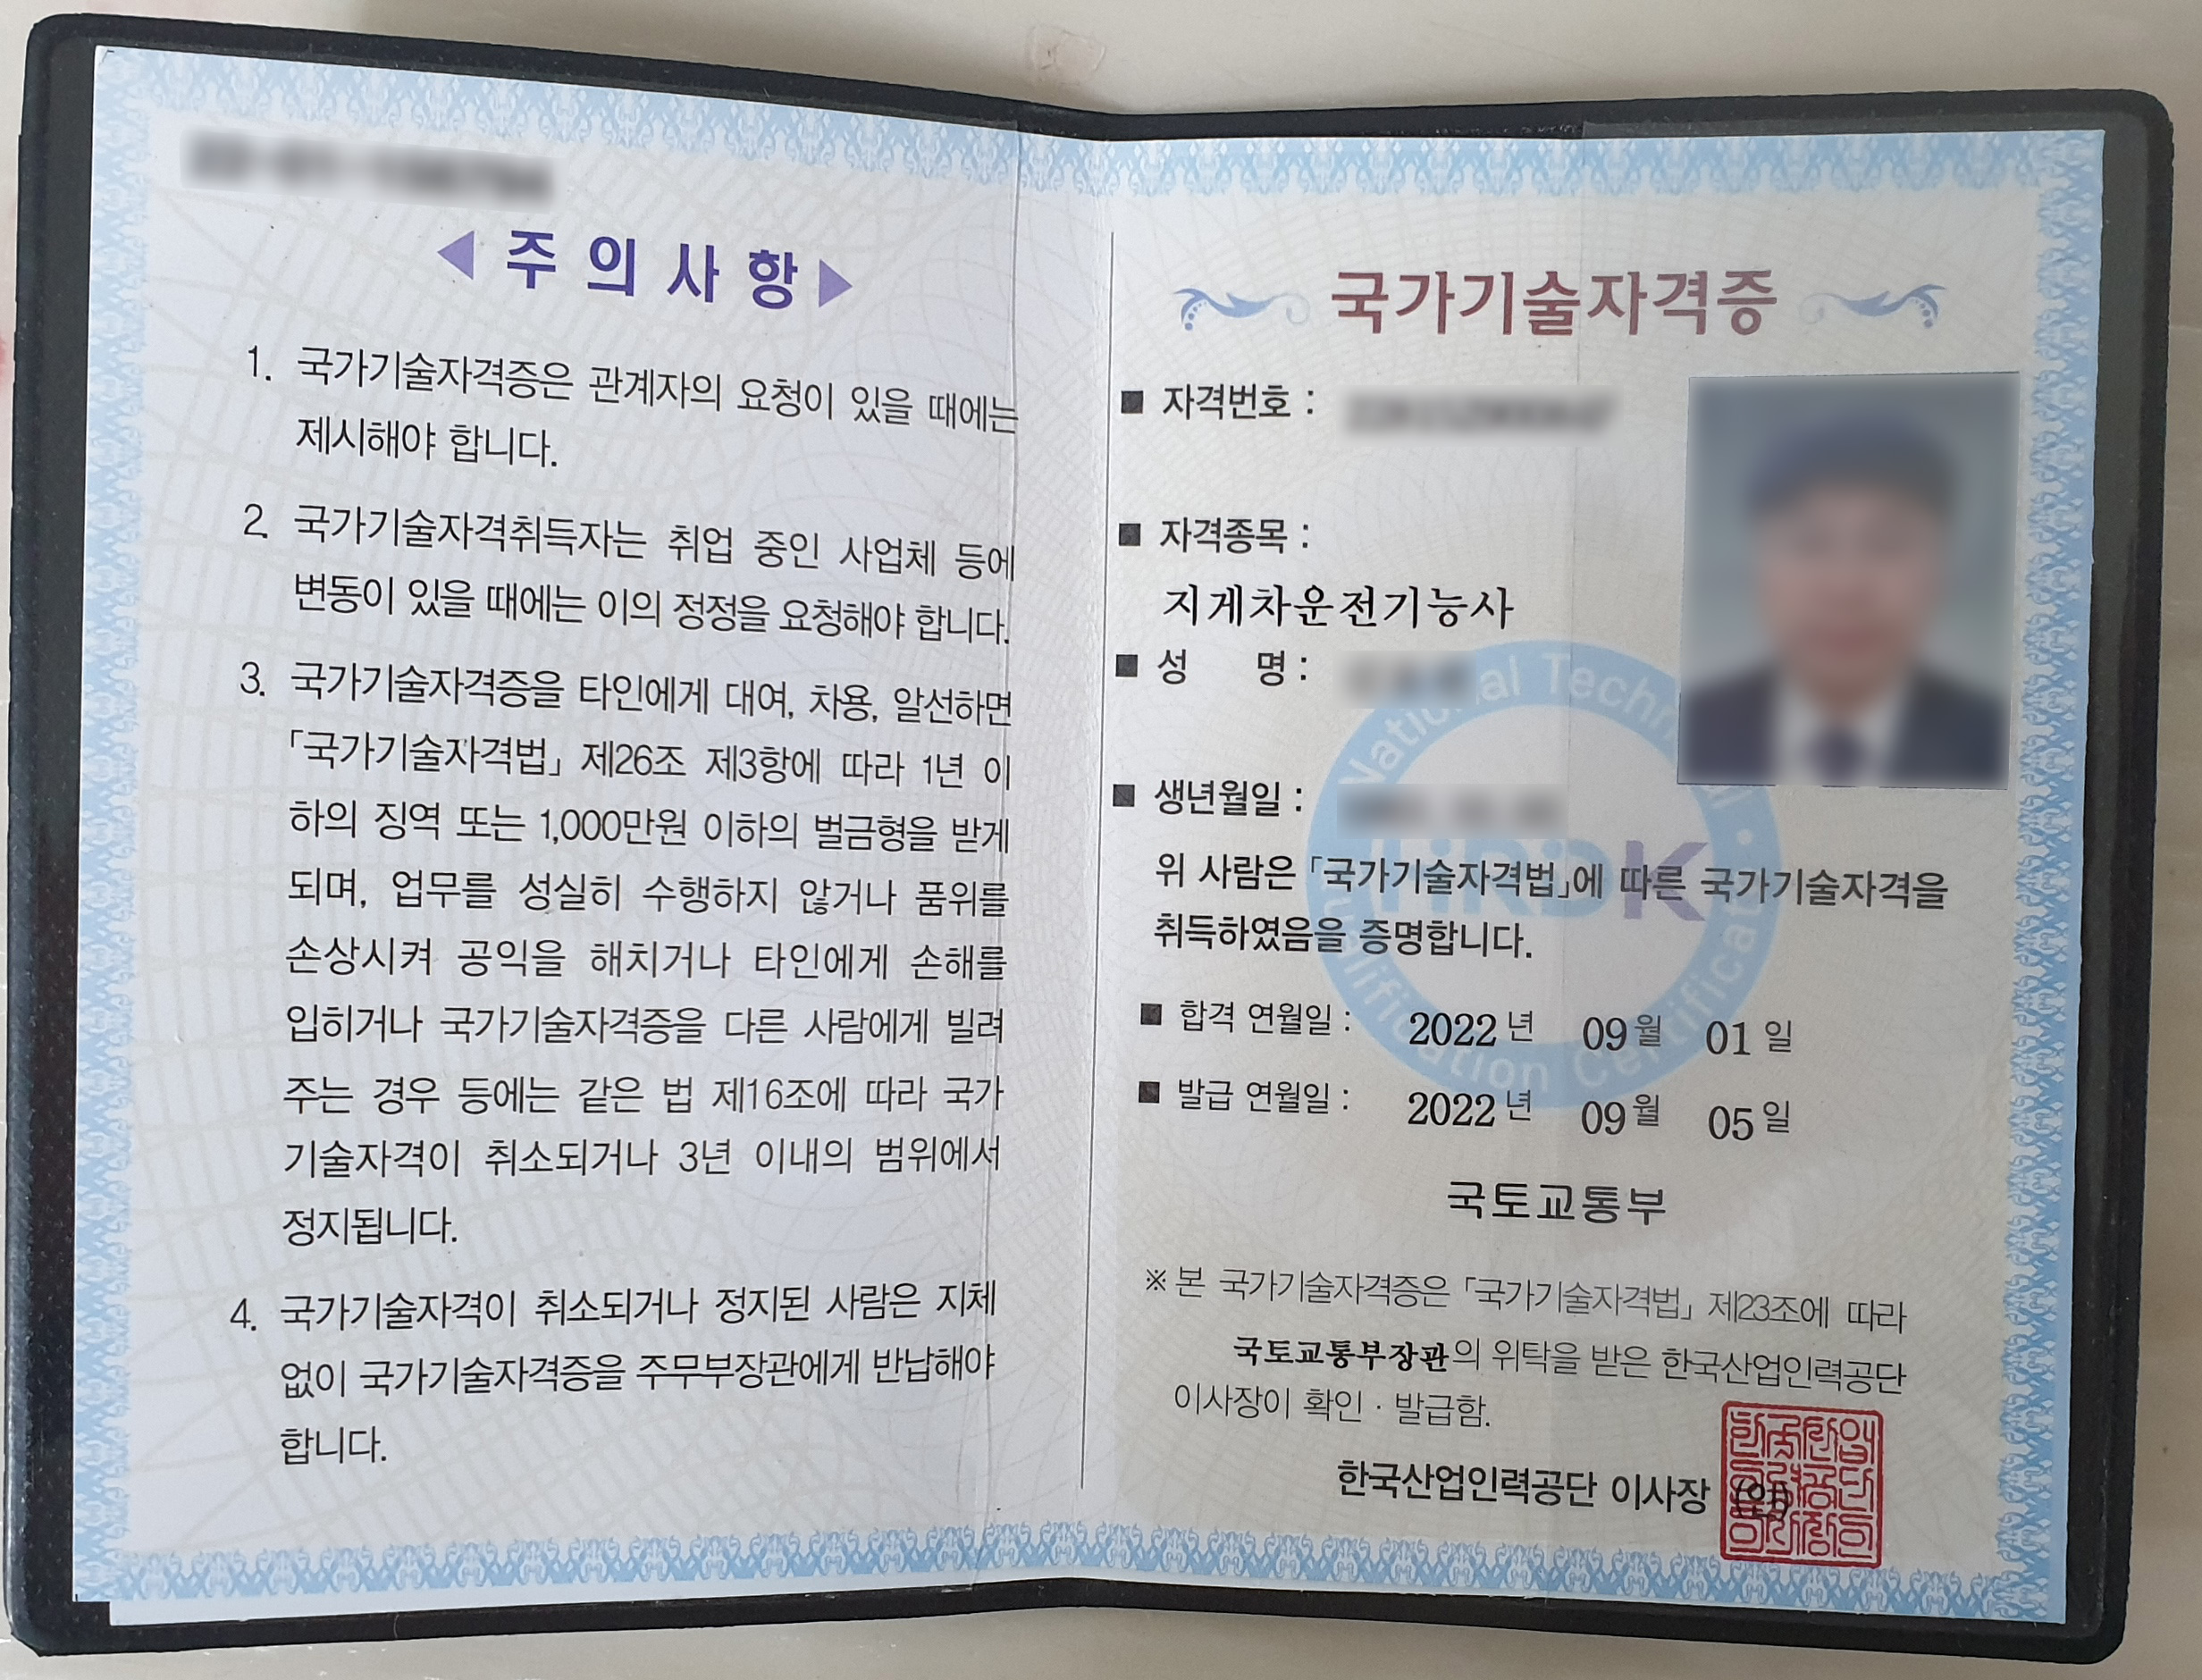 ◀ 주 의 사 항 ▶
1. 국가기술자격증은 관계자의 요청이 있을 때에는
제시해야 합니다.
2. 국가기술자격취득자는 취업 중인 사업체 등에
변동이 있을 때에는 이의 정정을 요청해야 합니다.
3. 국가기술자격증을 타인에게 대여, 차용, 알선하면
「국가기술자격법」 제26조 제3항에 따라 1년 이
하의 징역 또는 1,000만원 이하의 벌금형을 받게
되며, 업무를 성실히 수행하지 않거나 품위를
손상시켜 공익을 해치거나 타인에게 손해를
입히거나 국가기술자격증을 다른 사람에게 빌려
주는 경우 등에는 같은 법 제16조에 따라 국가
기술자격이 취소되거나 3년 이내의 범위에서
정지됩니다.
4. 국가기술자격이 취소되거나 정지된 사람은 지체
없이 국가기술자격증을 주무부장관에게 반납해야
합니다.
국가기술자격증
■ 자격번호 :
■ 자격종목 :
지게차운전기능사
■ 성 명 :
■ 생년월일 :
위 사람은 「국가기술자격법」에 따른 국가기술자격을
취득하였음을 증명합니다.
■ 합격 연월일 : 2022 년 09 월 01 일
■ 발급 연월일 : 2022 년 09 월 05 일
국토교통부
※ 본 국가기술자격증은 「국가기술자격법」 제23조에 따라
국토교통부장관의 위탁을 받은 한국산업인력공단
이사장이 확인 · 발급함.
한국산업인력공단 이사장 (인)
HRDK